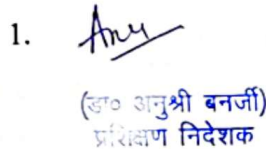 1.
(डा० अनुश्री बनर्जी)
प्रशिक्षण निदेशक